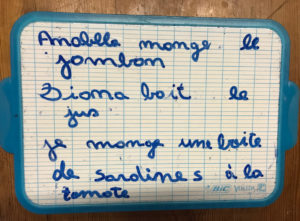 Anabella mange le
jambon
Ziana boit le
jus
je mange une boite
de sardines à la
tomate